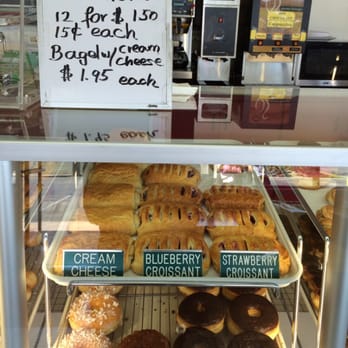 12 for $ 1.50
15¢ each
Bagel w/ cream
cheese
$ 1.95 each
CREAM
CHEESE
BLUEBERRY
CROISSANT
STRAWBERRY
CROISSANT